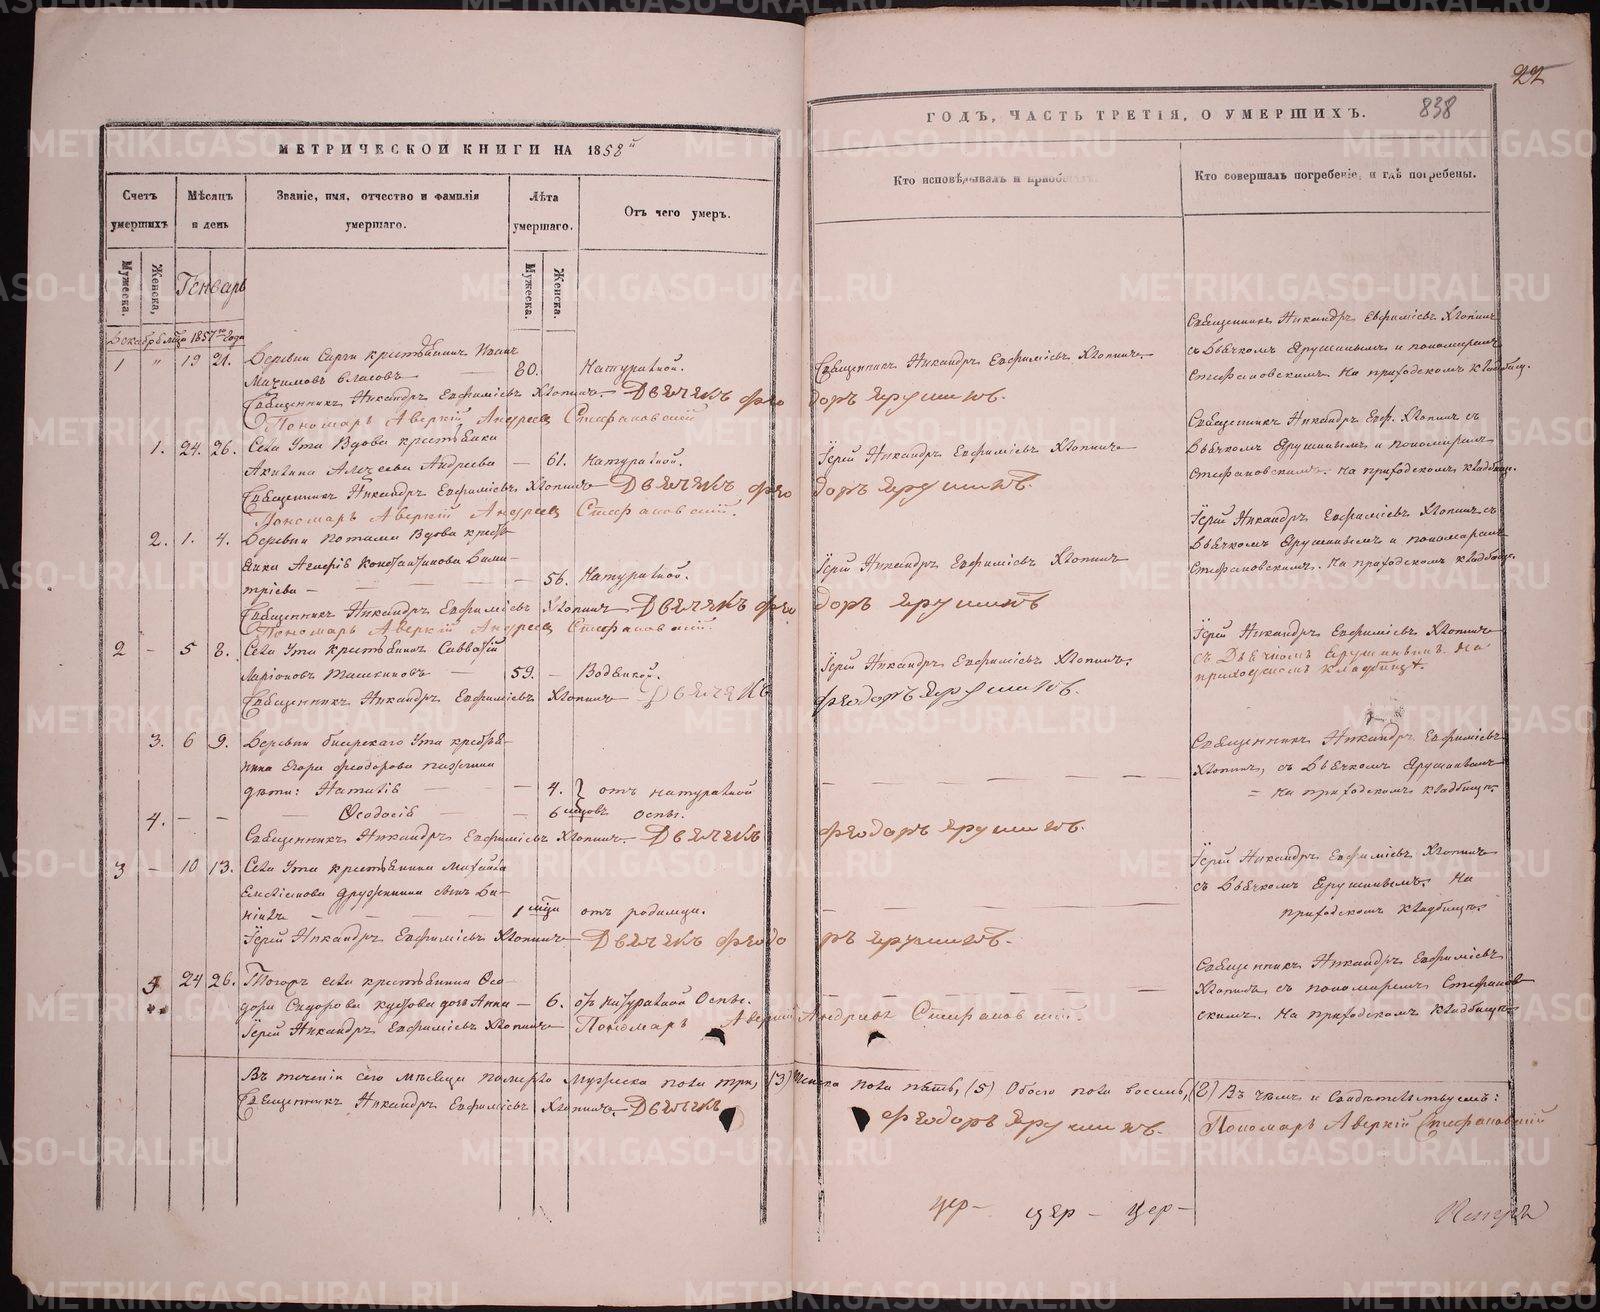 22
838
МЕТРИЧЕСКОЙ КНИГИ НА 1858й
ГОДЪ, ЧАСТЬ ТРЕТІЯ, О УМЕРШИХЪ.
Счетъ умершихъ.
Мѣсяцъ и день
Званіе, имя, отчество и фамилія умершаго.
Лѣта умершаго.
Отъ чего умеръ.
Кто исповѣдывалъ и пріобщалъ.
Кто совершалъ погребеніе, и гдѣ погребены.
Мужеска.
Женска,
Генварь
Мужеска.
Женска.
Декабрь мца 1857го года
1 " 19 21.
80. Натуральной.
Священникъ Никандръ Евфиміевъ Хлопинъ.
Священникъ Никандръ Евфиміевъ Хлопинъ
съ Дьячкомъ Ярушинымъ и пономаремъ
Стефановскимъ. На приходскомъ кладбищѣ.
Священникъ Никандръ Евфиміевъ Хлопинъ. Дьячекъ Феодоръ Ярушинъ.
Пономарь Аверкій Андреевъ Стефановскій
1. 24. 26. Села Ута Вдова крестьянка
Акилина Алексѣева Андреева — 61. Натуральной.
Іерей Никандръ Евфиміевъ Хлопинъ
Священникъ Никандръ Евф. Хлопинъ съ
Дьячкомъ Ярушинымъ и пономаремъ
Стефановскимъ. На приходскомъ кладбищѣ.
Священникъ Никандръ Евфиміевъ Хлопинъ Дьячекъ Феодоръ Ярушинъ.
Пономарь Аверкій Андреевъ Стефановскій.
2. 1. 4. Деревни Вдова кресть-
янка Константинова Дими-
тріева — 56. Натуральной.
Іерей Никандръ Евфиміевъ Хлопинъ
Іерей Никандръ Евфиміевъ Хлопинъ съ
Дьячкомъ Ярушинымъ и пономаремъ
Стефановскимъ. На приходскомъ кладбищѣ.
Священникъ Никандръ Евфиміевъ Хлопинъ Дьячекъ Феодоръ Ярушинъ
Пономарь Аверкій Андреевъ Стефановскій.
2 - 5 8. Села Ута крестьянинъ Савватій
Ларіоновъ 59. — Водянкой.
Іерей Никандръ Евфиміевъ Хлопинъ.
Іерей Никандръ Евфиміевъ Хлопинъ
съ Дьячкомъ Ярушинымъ. На
приходскомъ кладбищѣ.
Священникъ Никандръ Евфиміевъ Хлопинъ Дьячекъ Феодоръ Ярушинъ.
3. 6 9. Деревни Ута крестья-
нина Егора Феодорова
дѣти: Наталія — 4. отъ натуральной
4. - - Ѳеодосія — 6 мцовъ оспы.
Священникъ Никандръ Евфиміевъ
Хлопинъ, съ Дьячкомъ Ярушинымъ
на приходскомъ кладбищѣ.
Священникъ Никандръ Евфиміевъ Хлопинъ. Дьячекъ Феодоръ Ярушинъ.
3 - 10 13. Села Ута крестьянина Михаила
Дружинина сынъ Да-
ніилъ 1 мца отъ родимца.
Іерей Никандръ Евфиміевъ Хлопинъ
съ Дьячкомъ Ярушинымъ. На
приходскомъ кладбищѣ
Іерей Никандръ Евфиміевъ Хлопинъ Дьячекъ Феодоръ Ярушинъ.
5 24 26. Тогожъ села крестьянина Ѳео-
дора Сидорова дочь Анна — 6. отъ натуральной Оспы.
Священникъ Никандръ Евфиміевъ
Хлопинъ съ пономаремъ Стефанов
скимъ. На приходскомъ кладбищѣ
Іерей Никандръ Евфиміевъ Хлопинъ Пономарь Аверкій Андреевъ Стефановскій.
Въ теченіи сего мѣсяца померло Мужеска пола три, (3) Женска пола пять, (5) Обоего пола восемь, (8) Въ чемъ и свидѣтельствуемъ:
Священникъ Никандръ Евфиміевъ Хлопинъ. Дьячекъ Феодоръ Ярушинъ. Пономарь Аверкій Стефановскій
цер- цер- цер-
METRIKI.GASO-URAL.RU